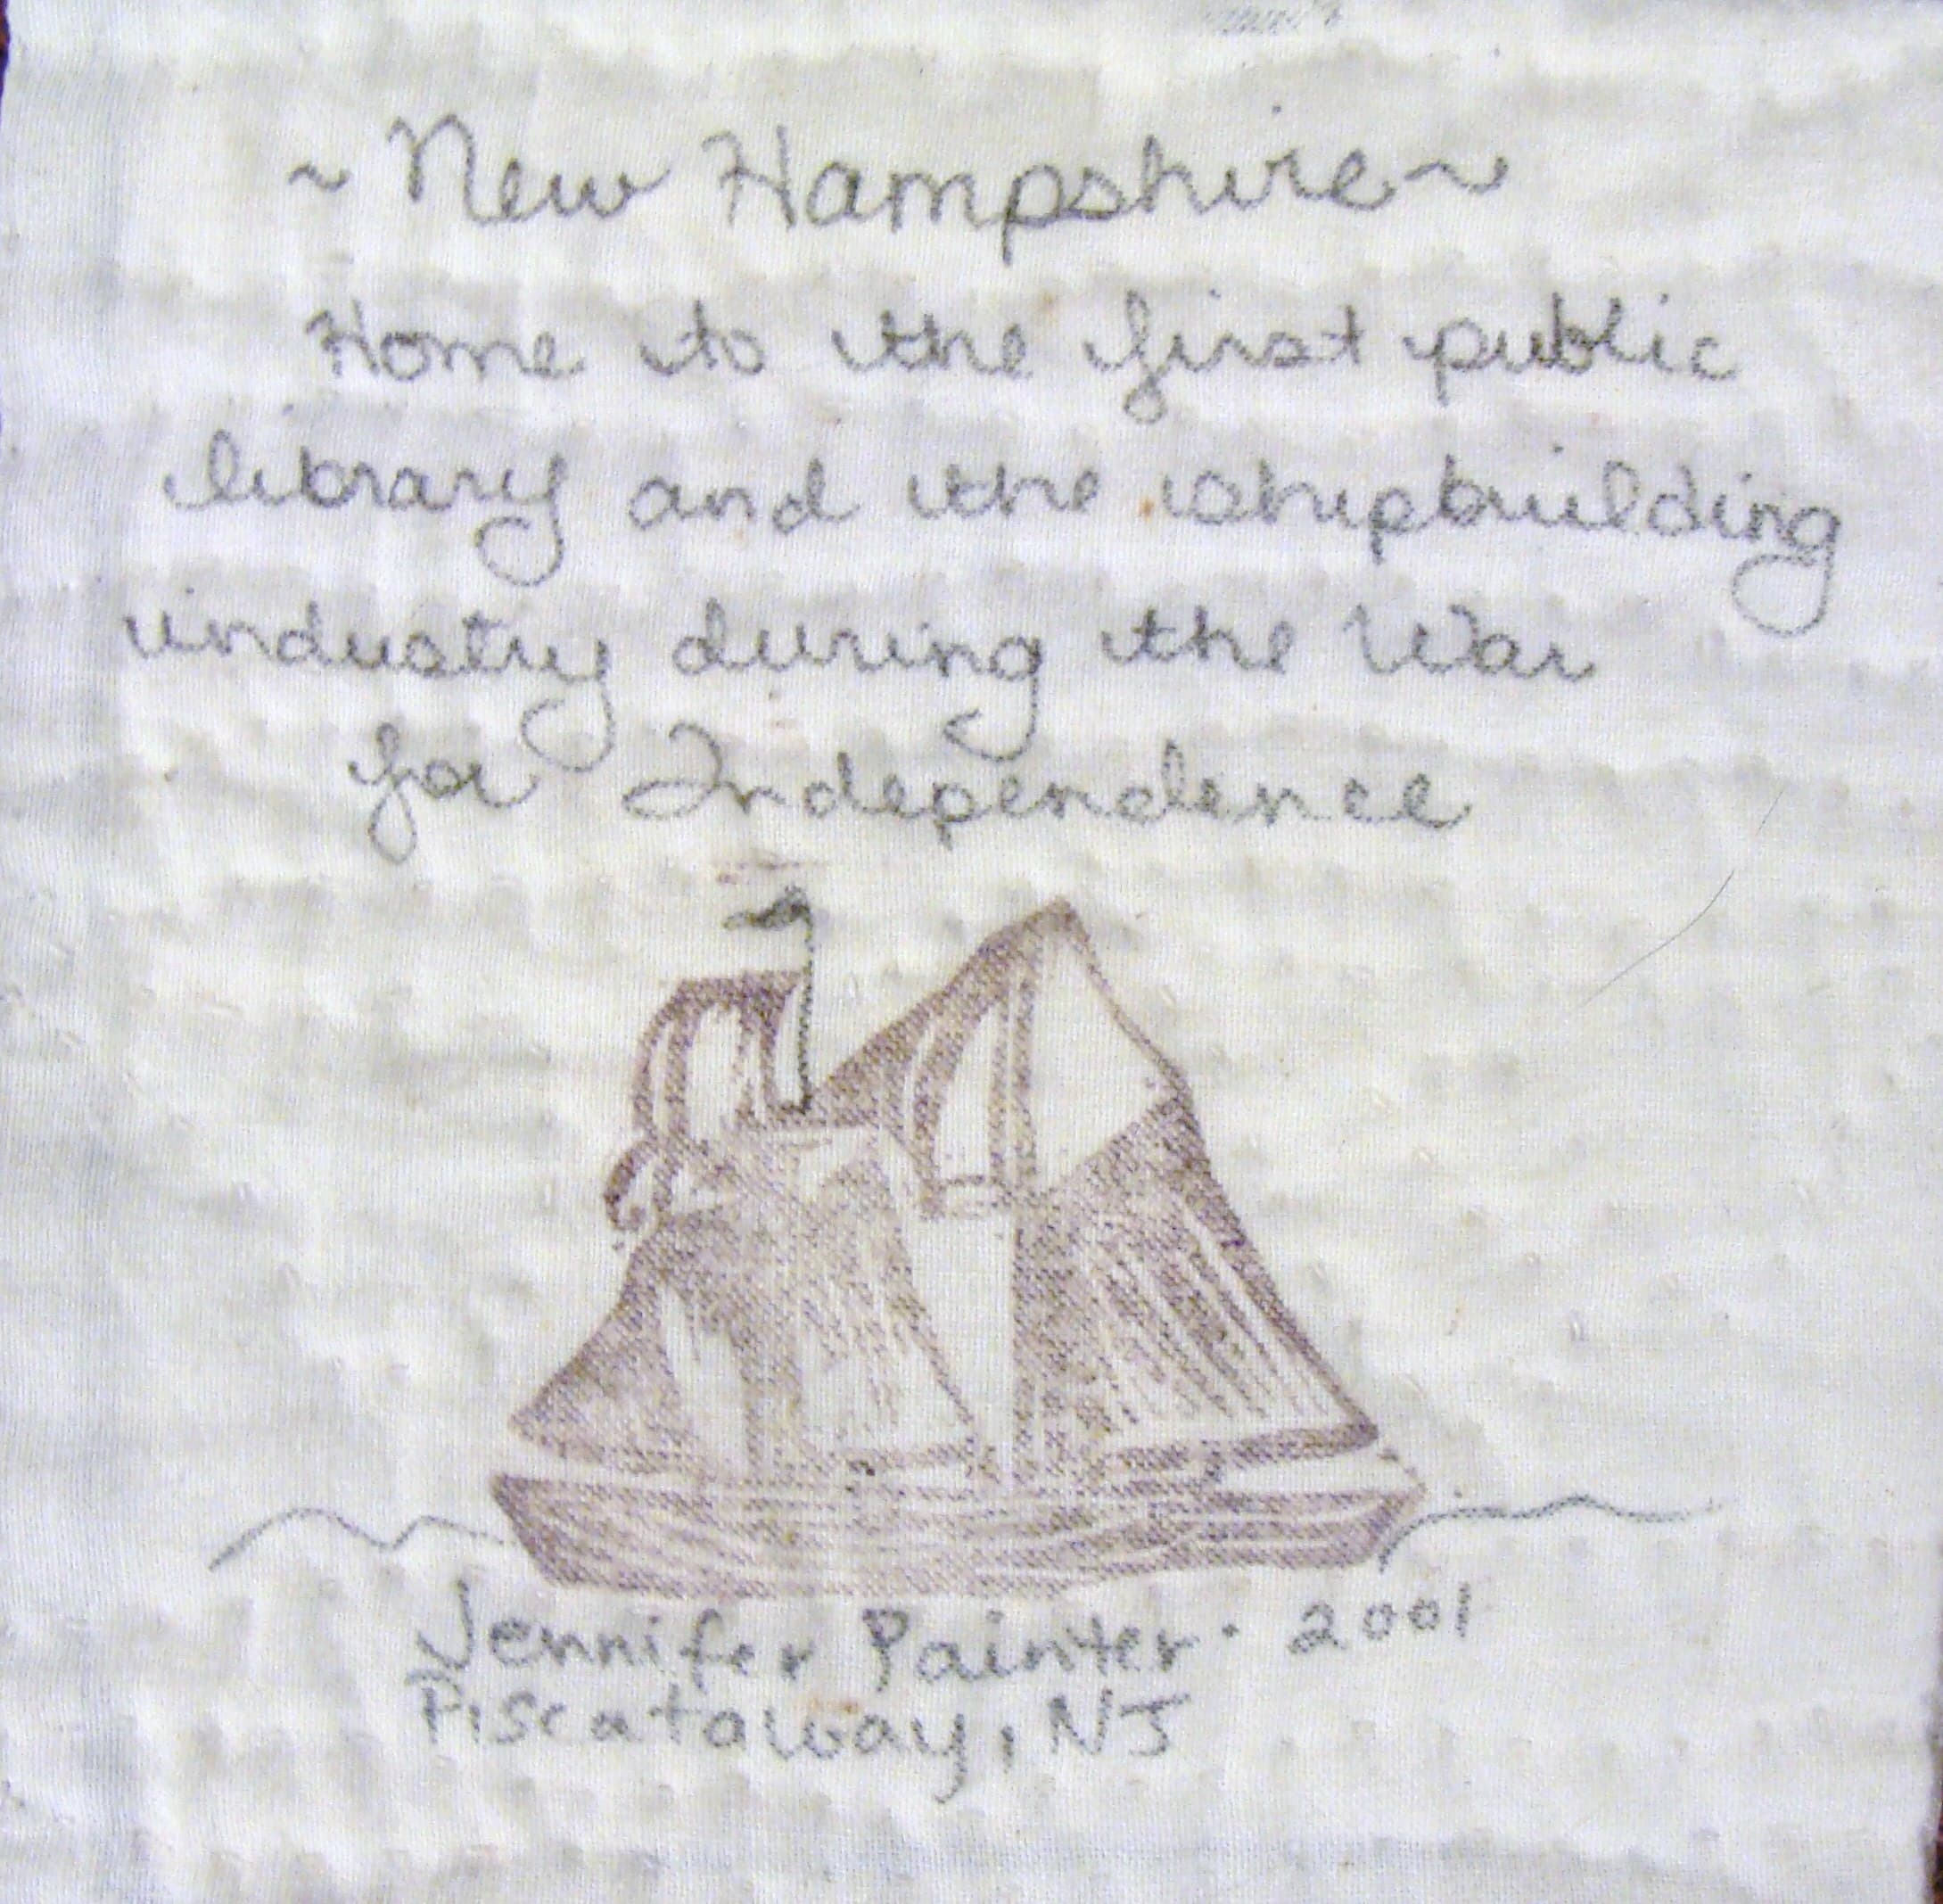 ~ New Hampshire ~
Home to the first public
library and the shipbuilding
industry during the War
for Independence
Jennifer Painter · 2001
Piscataway, NJ